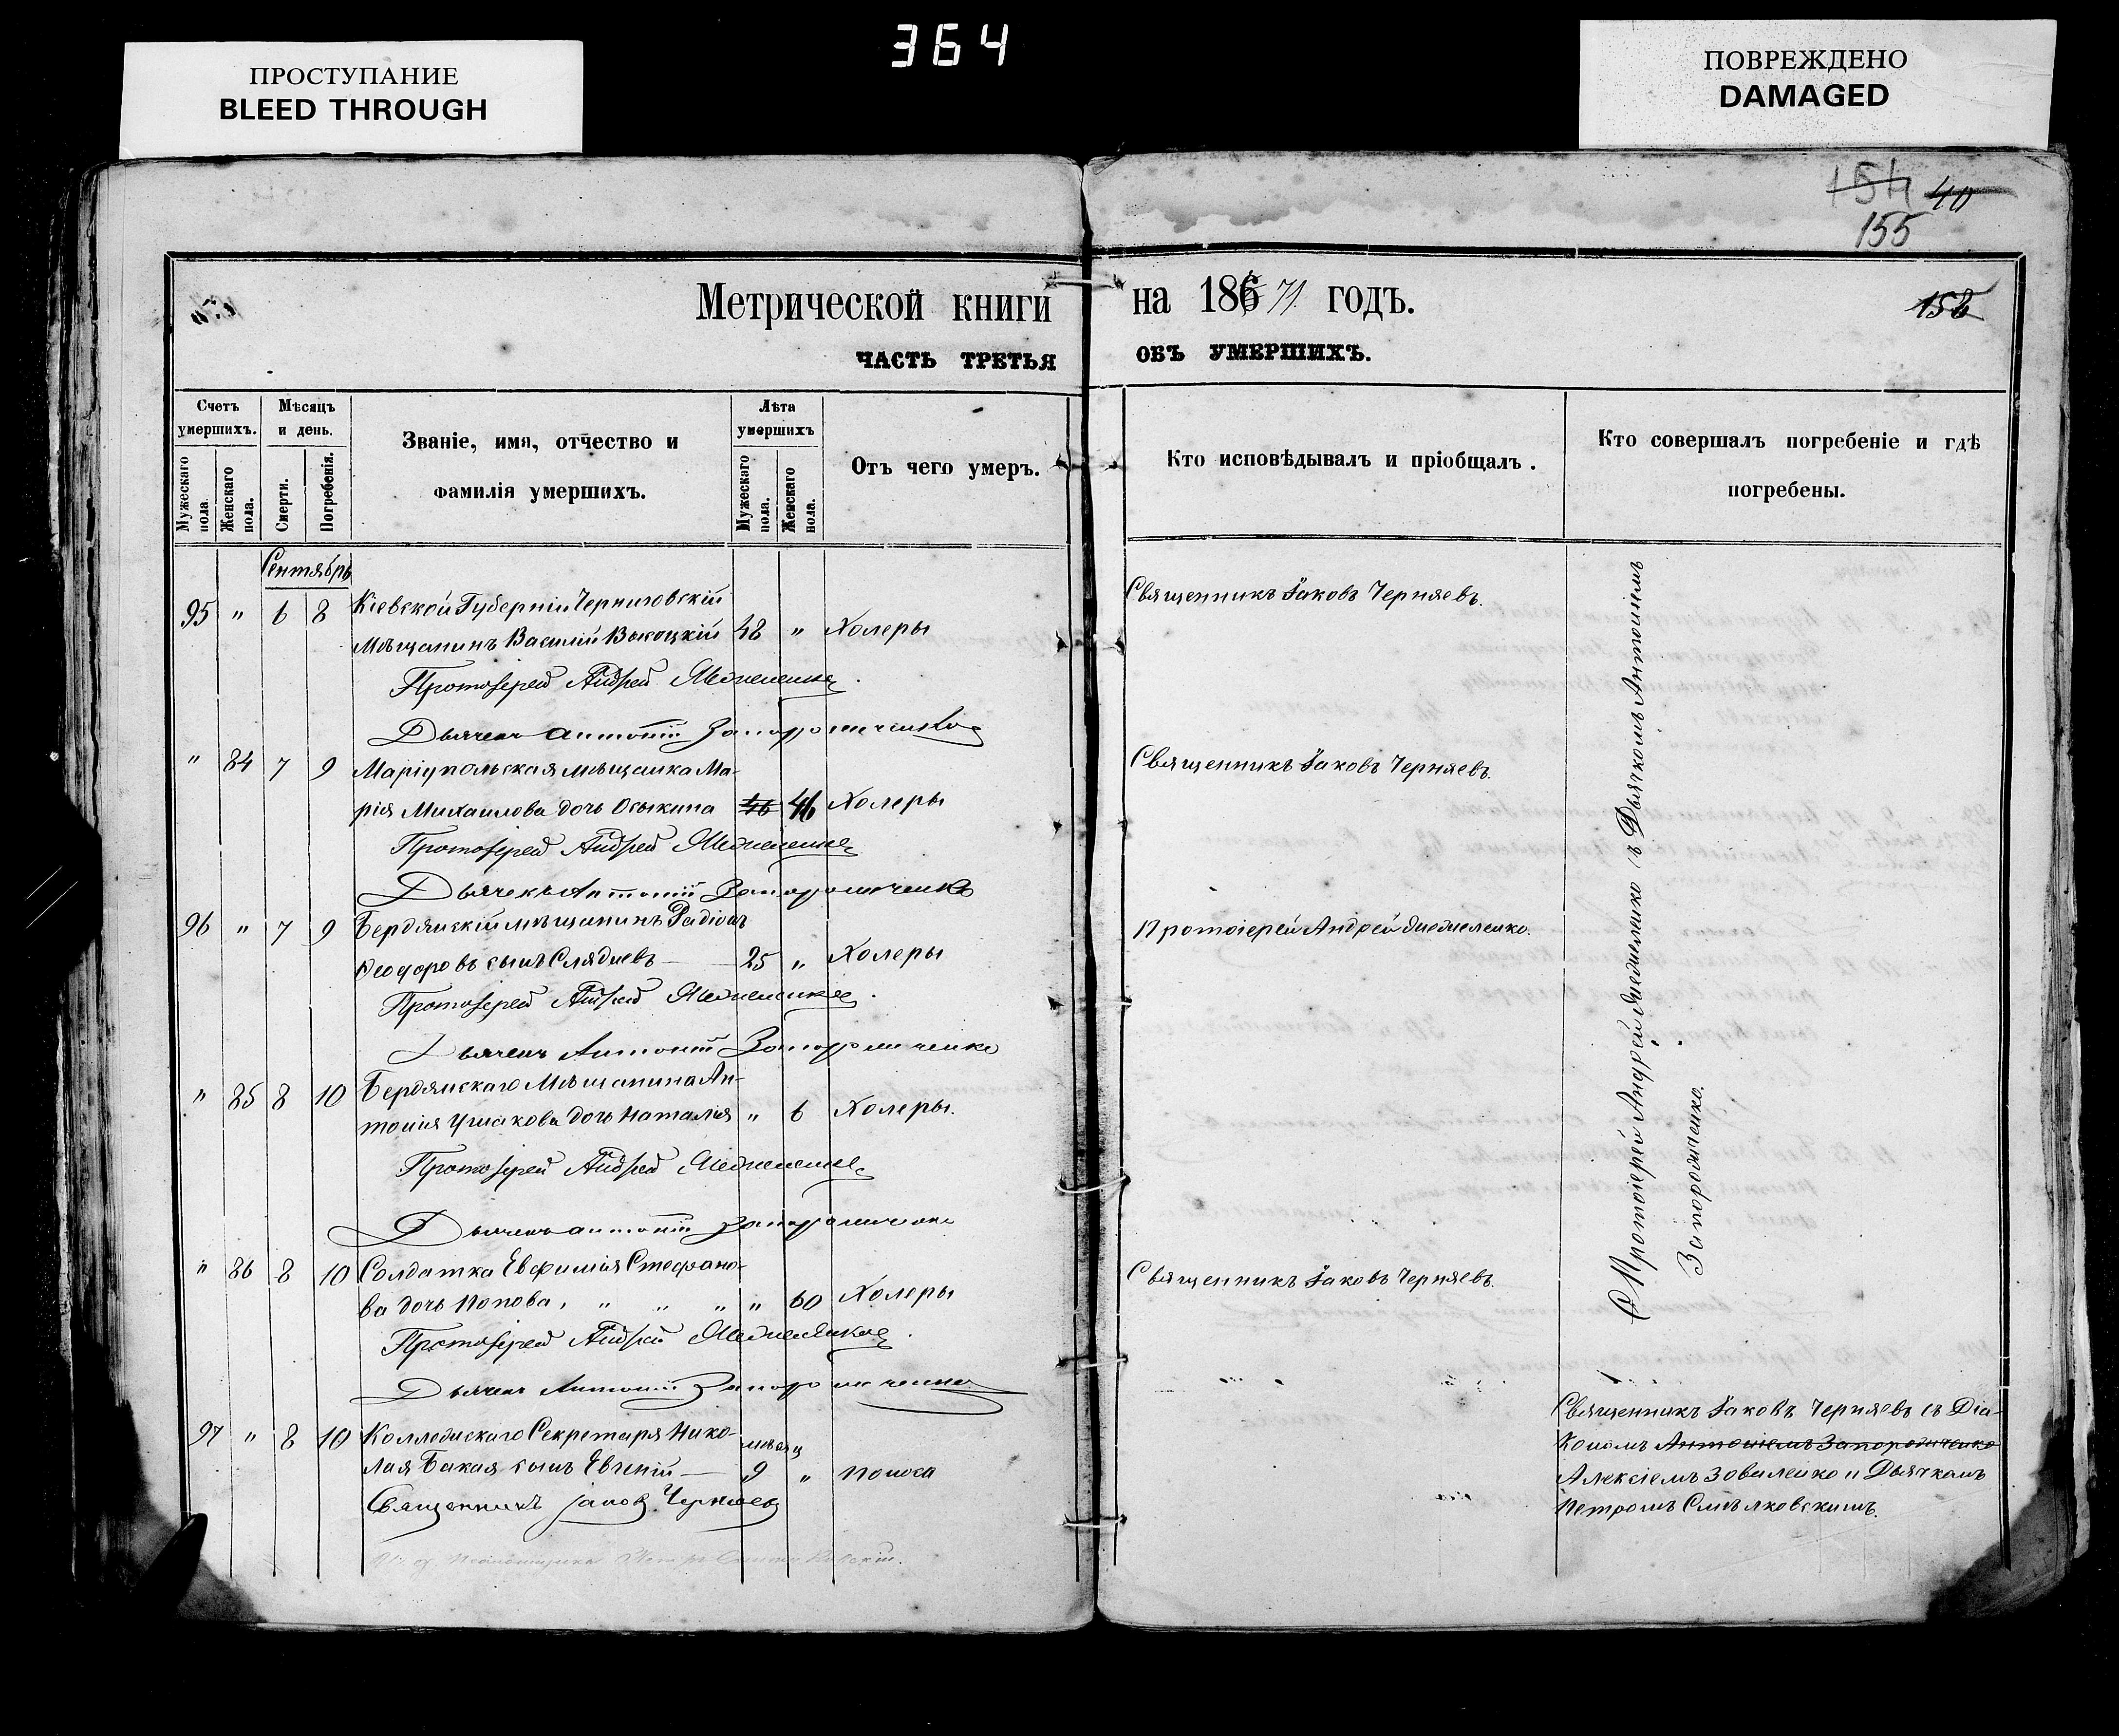 364
ПРОСТУПАНИЕ
BLEED THROUGH
ПОВРЕЖДЕНО
DAMAGED
154 40
155
158
Метрической книги на 186 71 годъ.
ЧАСТЬ ТРЕТЬЯ ОБЪ УМЕРШИХЪ.
Счетъ умершихъ.
Мужескаго пола.
Женскаго пола.
Мѣсяцъ и день.
Смерти.
Погребенія.
Званіе, имя, отчество и
фамилія умершихъ.
Лѣта умершихъ
Мужескаго пола.
Женскаго пола.
Отъ чего умеръ.
Кто исповѣдывалъ и пріобщалъ.
Кто совершалъ погребеніе и гдѣ
погребены.
Сентябрь
95 " 6 8 Кіевской Губерніи Черниговскій
мѣщанинъ Василій Высоцкій 48 " Холеры
Священникъ Іаковъ Черняевъ.
Протоіерей Андрей
Дьячекъ Антоній Запорожченко
" 84 7 9 Маріупольская мѣщанка Ма-
рія Михаилова дочь Осыкина 46 46 Холеры
Священникъ Іаковъ Черняевъ.
Протоіерей Андрей
Дьячекъ Антоній Запорожченко
96 " 7 9 Бердянскій мѣщанинъ Радіонъ
Ѳеодоровъ сынъ 25 " Холеры
Протоіерей Андрей
Протоіерей Андрей
Дьячекъ Антоній Запорожченко
" 85 8 10 Бердянскаго Мѣщанина Ан-
тонія Ушакова дочь Наталія " 6 Холеры.
Протоіерей Андрей
Дьячекъ Антоній Запорожченко
" 86 8 10 Солдатка Евфимія Стефано-
ва дочь Попова, " " " " 60 Холеры
Священникъ Іаковъ Черняевъ.
Протоіерей Андрей
Дьячекъ Антоній Запорожченко
97 " 8 10 Коллежскаго Секретаря Нико-
лая Бакая сынъ Евгеній — мѣсяц 9 " поноса
Священникъ Іаковъ Черняевъ
Протоіерей Андрей съ Дьячкомъ Антоніемъ
Запорожченко.
Священникъ Іаковъ Черняевъ съ Діа-
кономъ Антоніемъ Запорожченко
Алексіемъ Зоваленко и Дьячкомъ
Петромъ Смѣлковскимъ.